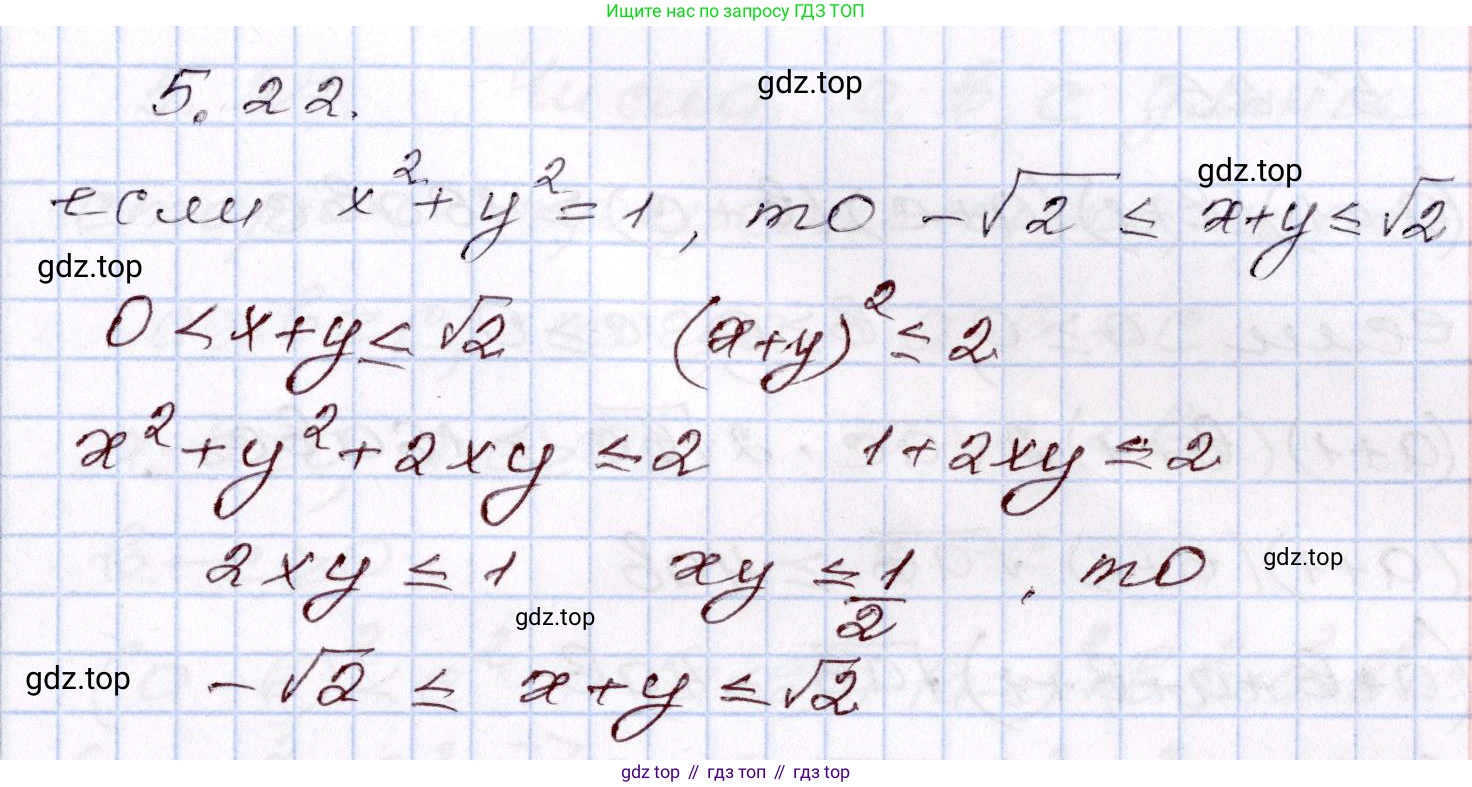 Ищите нас по запросу ГДЗ ТОП
5.22.
gdz.top
если x² + y² = 1, то -√2 ≤ x+y ≤ √2
gdz.top
gdz.top
0 < x+y ≤ √2 (x+y)² ≤ 2
x² + y² + 2xy ≤ 2 1 + 2xy ≤ 2
2xy ≤ 1 xy ≤ 1/2 , то
gdz.top
gdz.top
gdz.top
-√2 ≤ x+y ≤ √2
gdz top // гдз топ // gdz top